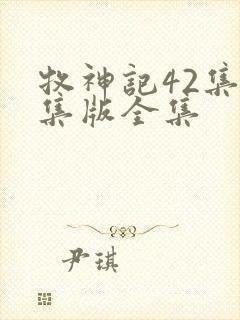 牧神記42集
集版全集
尹琪